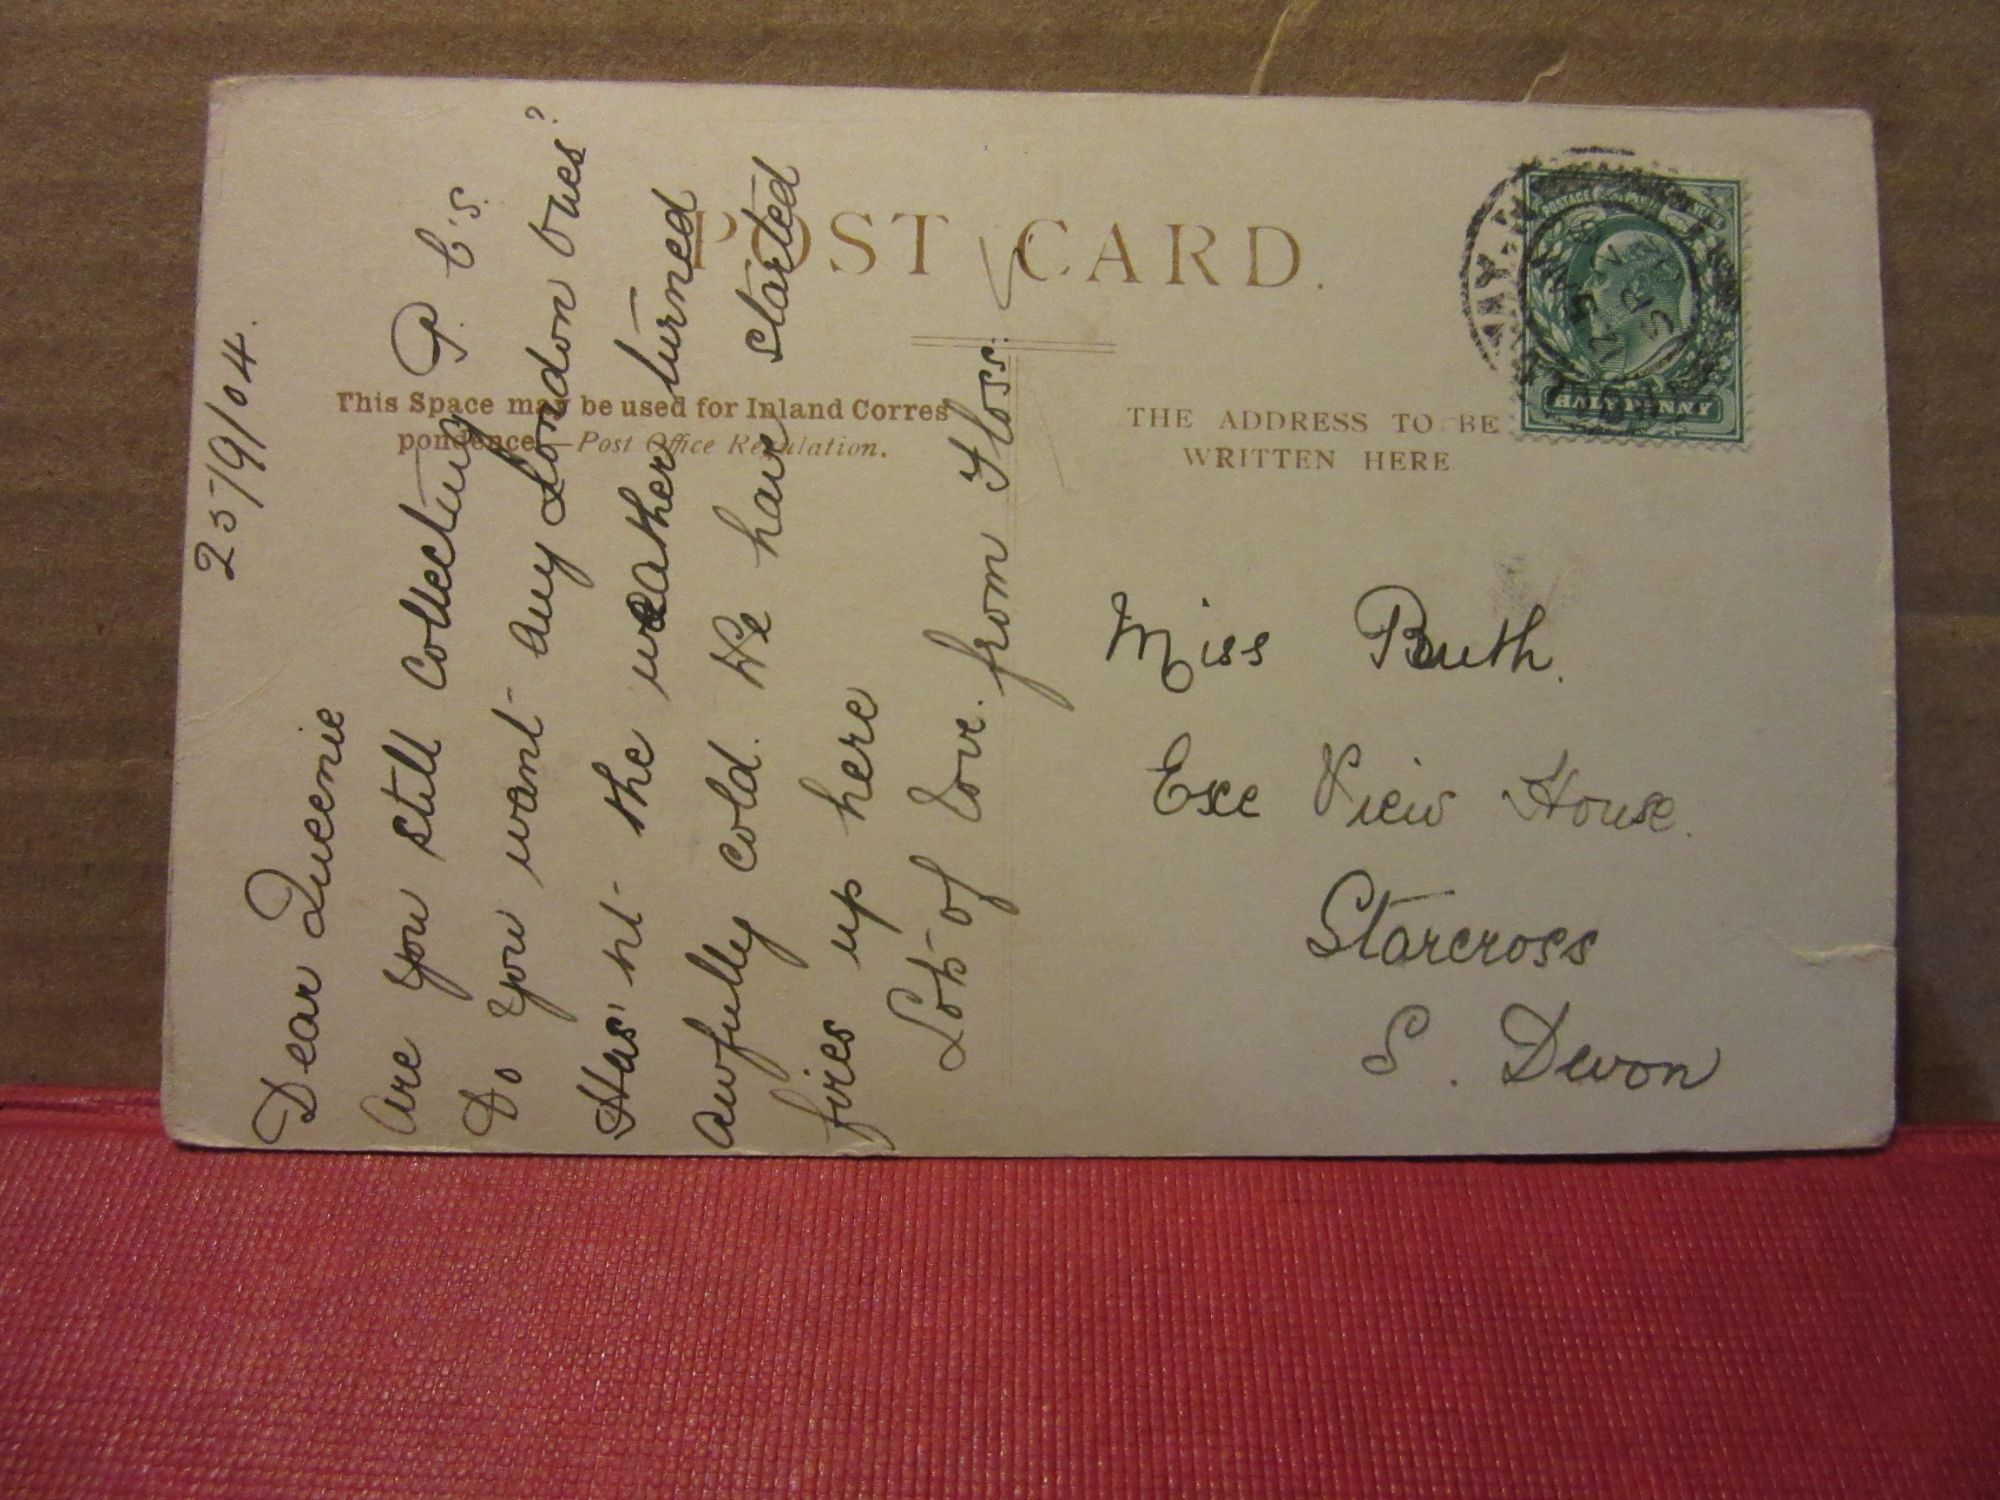 POST CARD.
This Space may be used for Inland Corres
pondence.—Post Office Regulation.
THE ADDRESS TO BE
WRITTEN HERE
POSTAGE
HALF PENNY
25/9/04.
Dear Queenie
Are you still collecting P. C's.
Do you want any London ones?
Has'nt the weather turned
awfully cold. We have started
fires up here
Lots of love. from Floss.
Miss Buth.
Exe View House.
Starcross
S. Devon